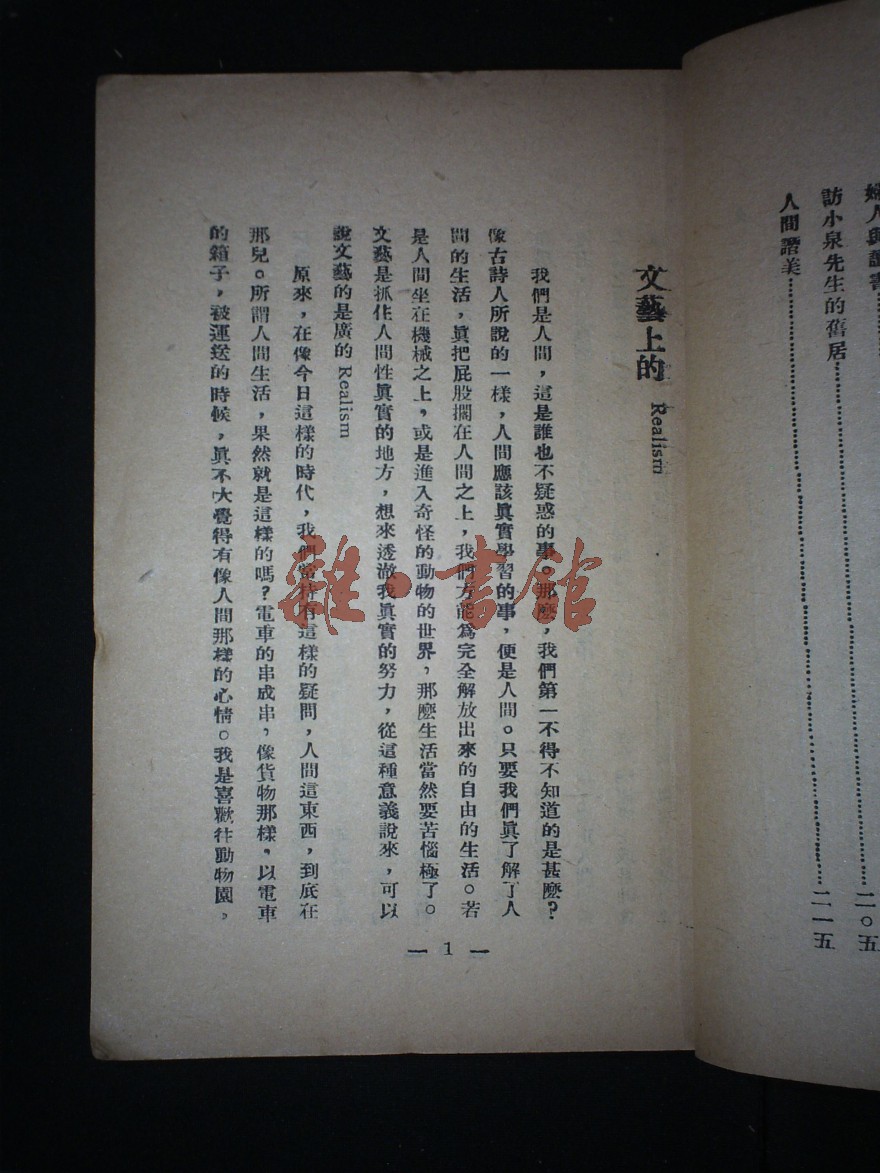 婦人與讀書
訪小泉先生的舊居……二〇五
人間讚美……二一五
文藝上的 Realism
我們是人間，這是誰也不疑惑的事。那麼，我們第一不得不知道的是甚麼？
像古詩人所說的一樣，人間應該眞實學習的事，便是人間。只要我們眞了解了人
間的生活，眞把屁股擱在人間之上，我們方能為完全解放出來的自由的生活。若
是人間坐在機械之上，或是進入奇怪的動物的世界，那麼生活當然要苦惱極了。
文藝是抓住人間性眞實的地方，想來透澈我眞實的努力，從這種意義說來，可以
說文藝的是廣的 Realism
原來，在像今日這樣的時代，我們當持有這樣的疑問，人間這東西，到底在
那兒。所謂人間生活，果然就是這樣的嗎？電車的串成串，像貨物那樣，以電車
的箱子，被運送的時候，眞不大覺得有像人間那樣的心情。我是喜歡往動物園，
— 1 —
雜·書館